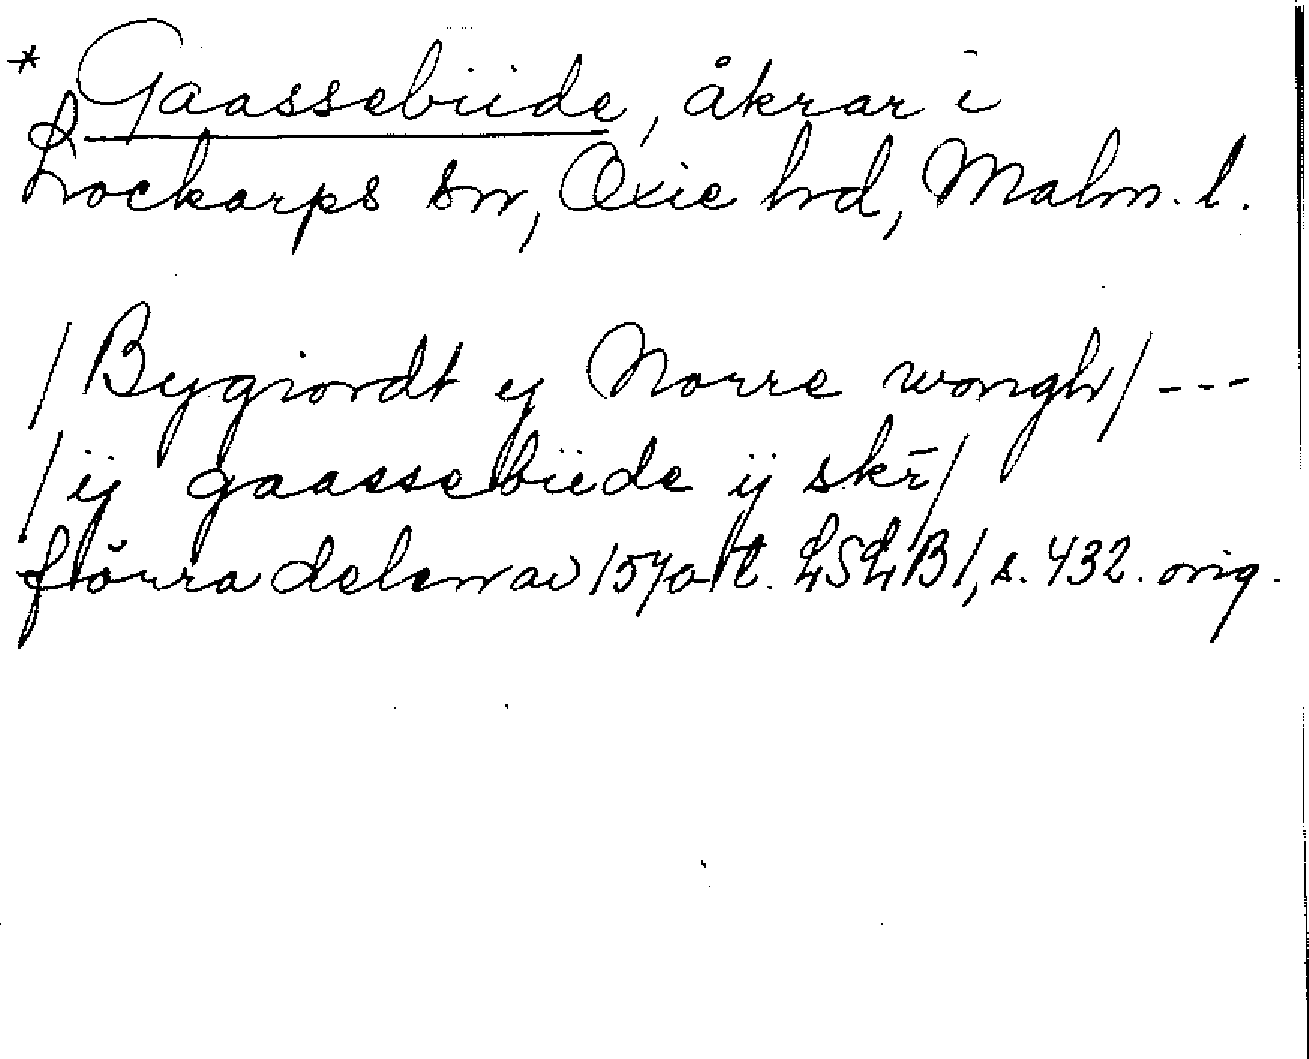 * Gaassebiide, åkrar i
Lockarps sn, Oxie hd, Malm. l.
/ Bygiordt ij Norre wongh / ---
/ ij gaassebiide ij skr̄ /
förra delen av 1570 t. LSLB 1, s. 432. orig.